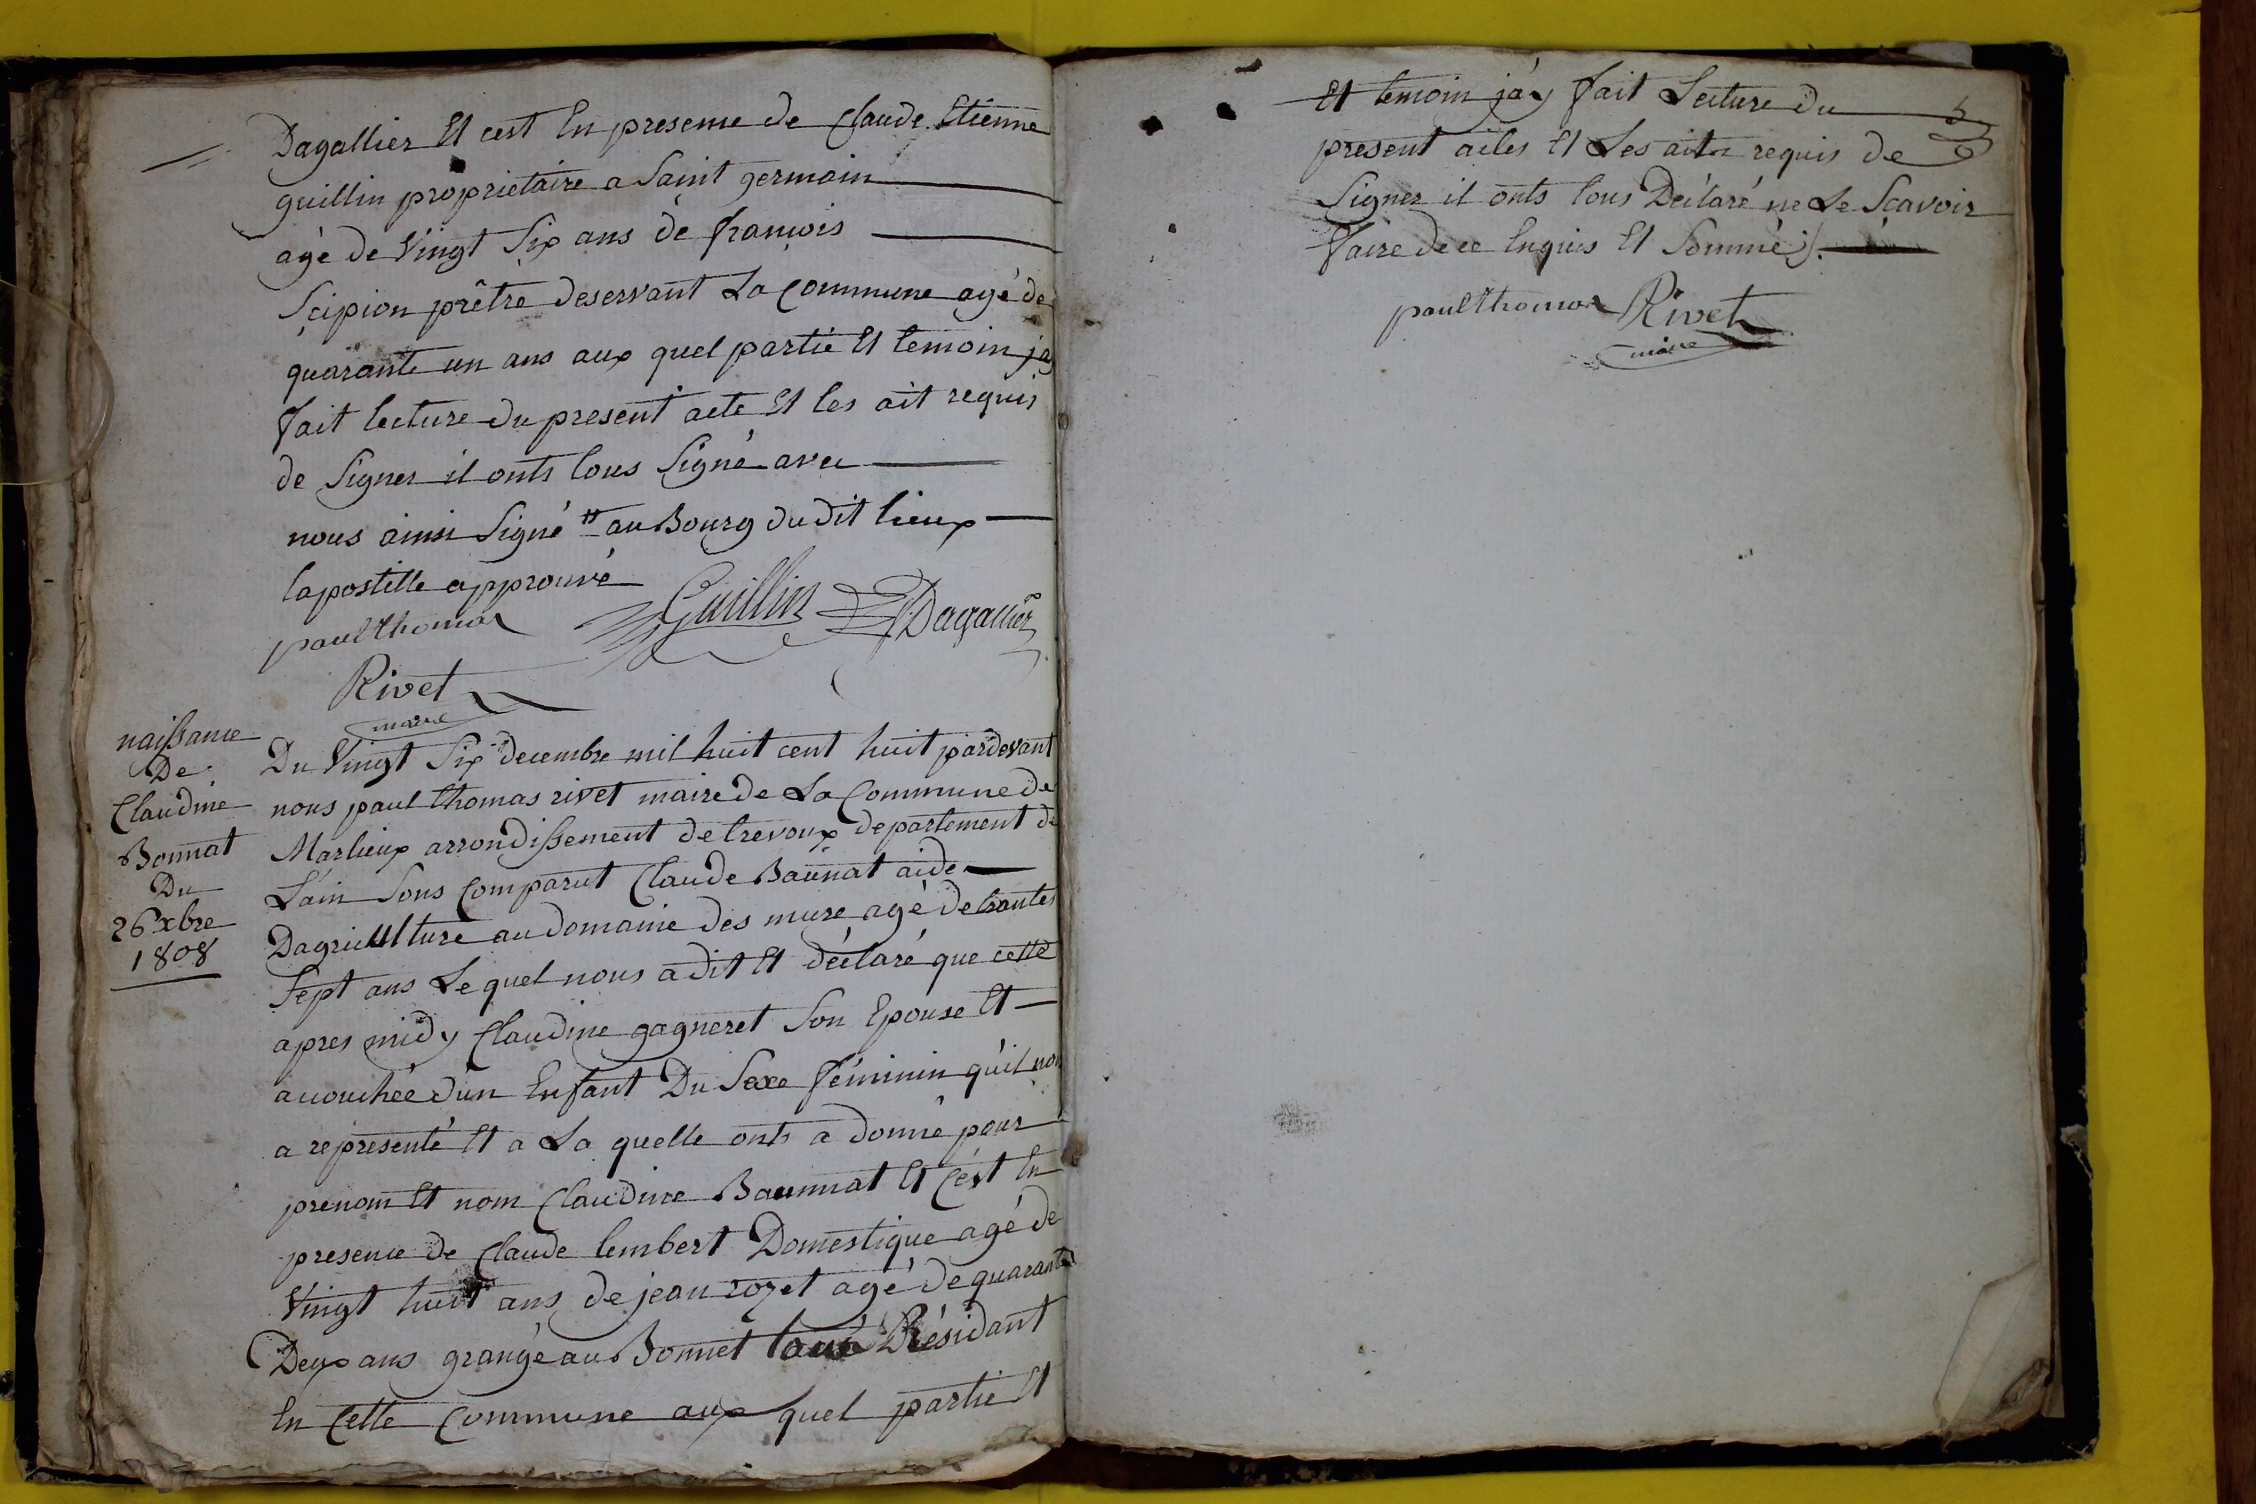 Dagallier Et cest En presence de Claude Etienne
guillin proprietaire a Saint germain
agé de Vingt Six ans de francois
Scipion prêtre deservant La Commune agé de
quarante un ans aux quel partie Et temoin jay
fait lecture du present acte Et les ait requis
de Signer il onts tous Signé avec
nous ainsi Signé # au Bourg du dit lieux
lapostille approuvé
paul thomas Guillin Dagallier
Rivet
maire
naissance
De
Claudine
Bonnat
Du
26 xbre
1808
Du Vingt Six decembre mil huit cent huit pardevant
nous paul thomas rivet maire de La Commune de
Marlieux arrondissement de trevoux departement de
L'ain Sons Comparut Claude Baunat aide
Dagriculture au domaine des mure agé de trante
Sept ans Le quel nous a dit Et déclaré que cette
apres midy Claudine gagneret Son Epouse Et
acouchée d'un Enfant Du Sexe féminin qu'il nou
a representé Et a La quelle onts a donné pour
prenom Et nom Claudine Baunnat Et C'ést En
presence de Claude lembert Domestique agé de
Vingt huit ans de jean rozet agé de quarante
Deux ans grangé au Bonnet tous Résidant
En Cette Commune aux quel partie Et
Et temoin jay fait Lecture du
present actes Et Les ait requis de
Signer il onts tous Déclaré ne Le Scavoir
faire de ce Enquis Et Sommé
paul thomas Rivet
maire